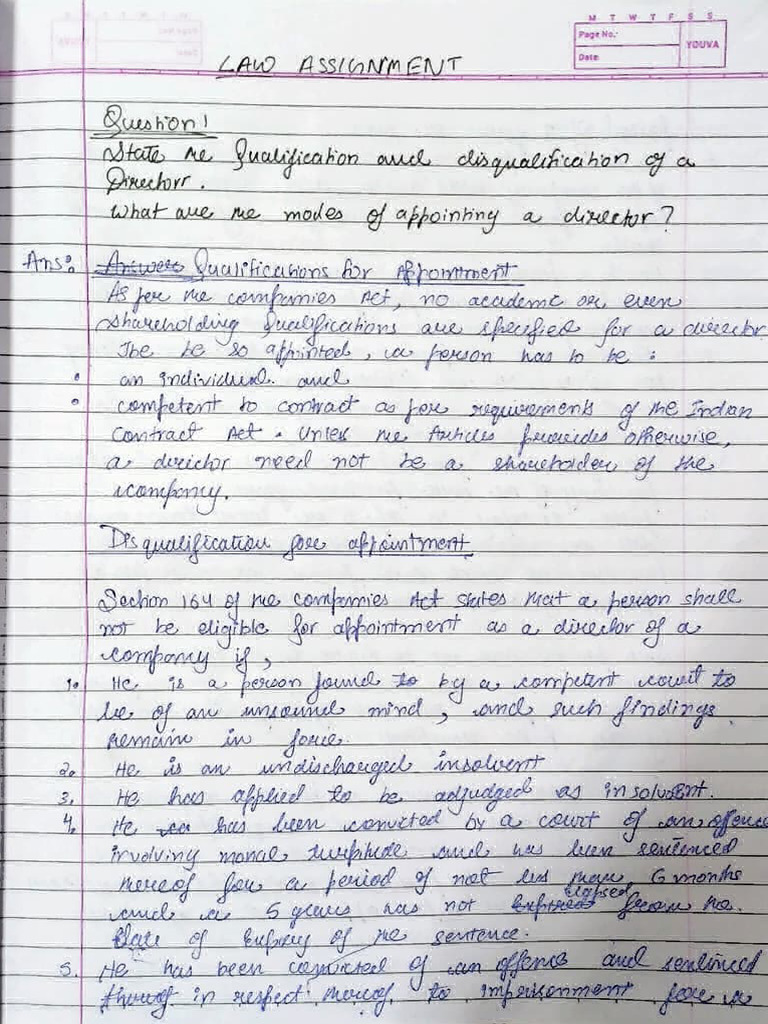 M T W T F S S
Page No.:
YOUVA
Date:
LAW ASSIGNMENT
Question 1
State the Qualification and disqualification of a
Directorr.
What are the modes of appointing a director?
Ans:- Answer Qualifications for Appointment
As per the companies Act, no academic or even
shareholding qualifications are specified for a director
The be so appointed, a person has to be :
• an individual and
• competent to contract as per requirements of the Indian
Contract Act. Unless the Articles provides otherwise,
a director need not be a shareholder of the
company.
Disqualification for appointment
Section 164 of the companies Act states that a person shall
not be eligible for appointment as a director of a
company if,
1. He is a person found to by a competent court to
be of an unsound mind, and such findings
remain in force.
2. He is an undischarged insolvent
3. He has applied to be adjudged as insolvent.
4. He ca has been convicted by a court of an offence
involving moral turpitude and has been sentenced
thereof for a period of not less than 6 months
and a 5 years has not expired elapsed from the
date of expiry of the sentence.
5. He has been convicted of an offence and sentenced
in respect thereof to imprisonment for a